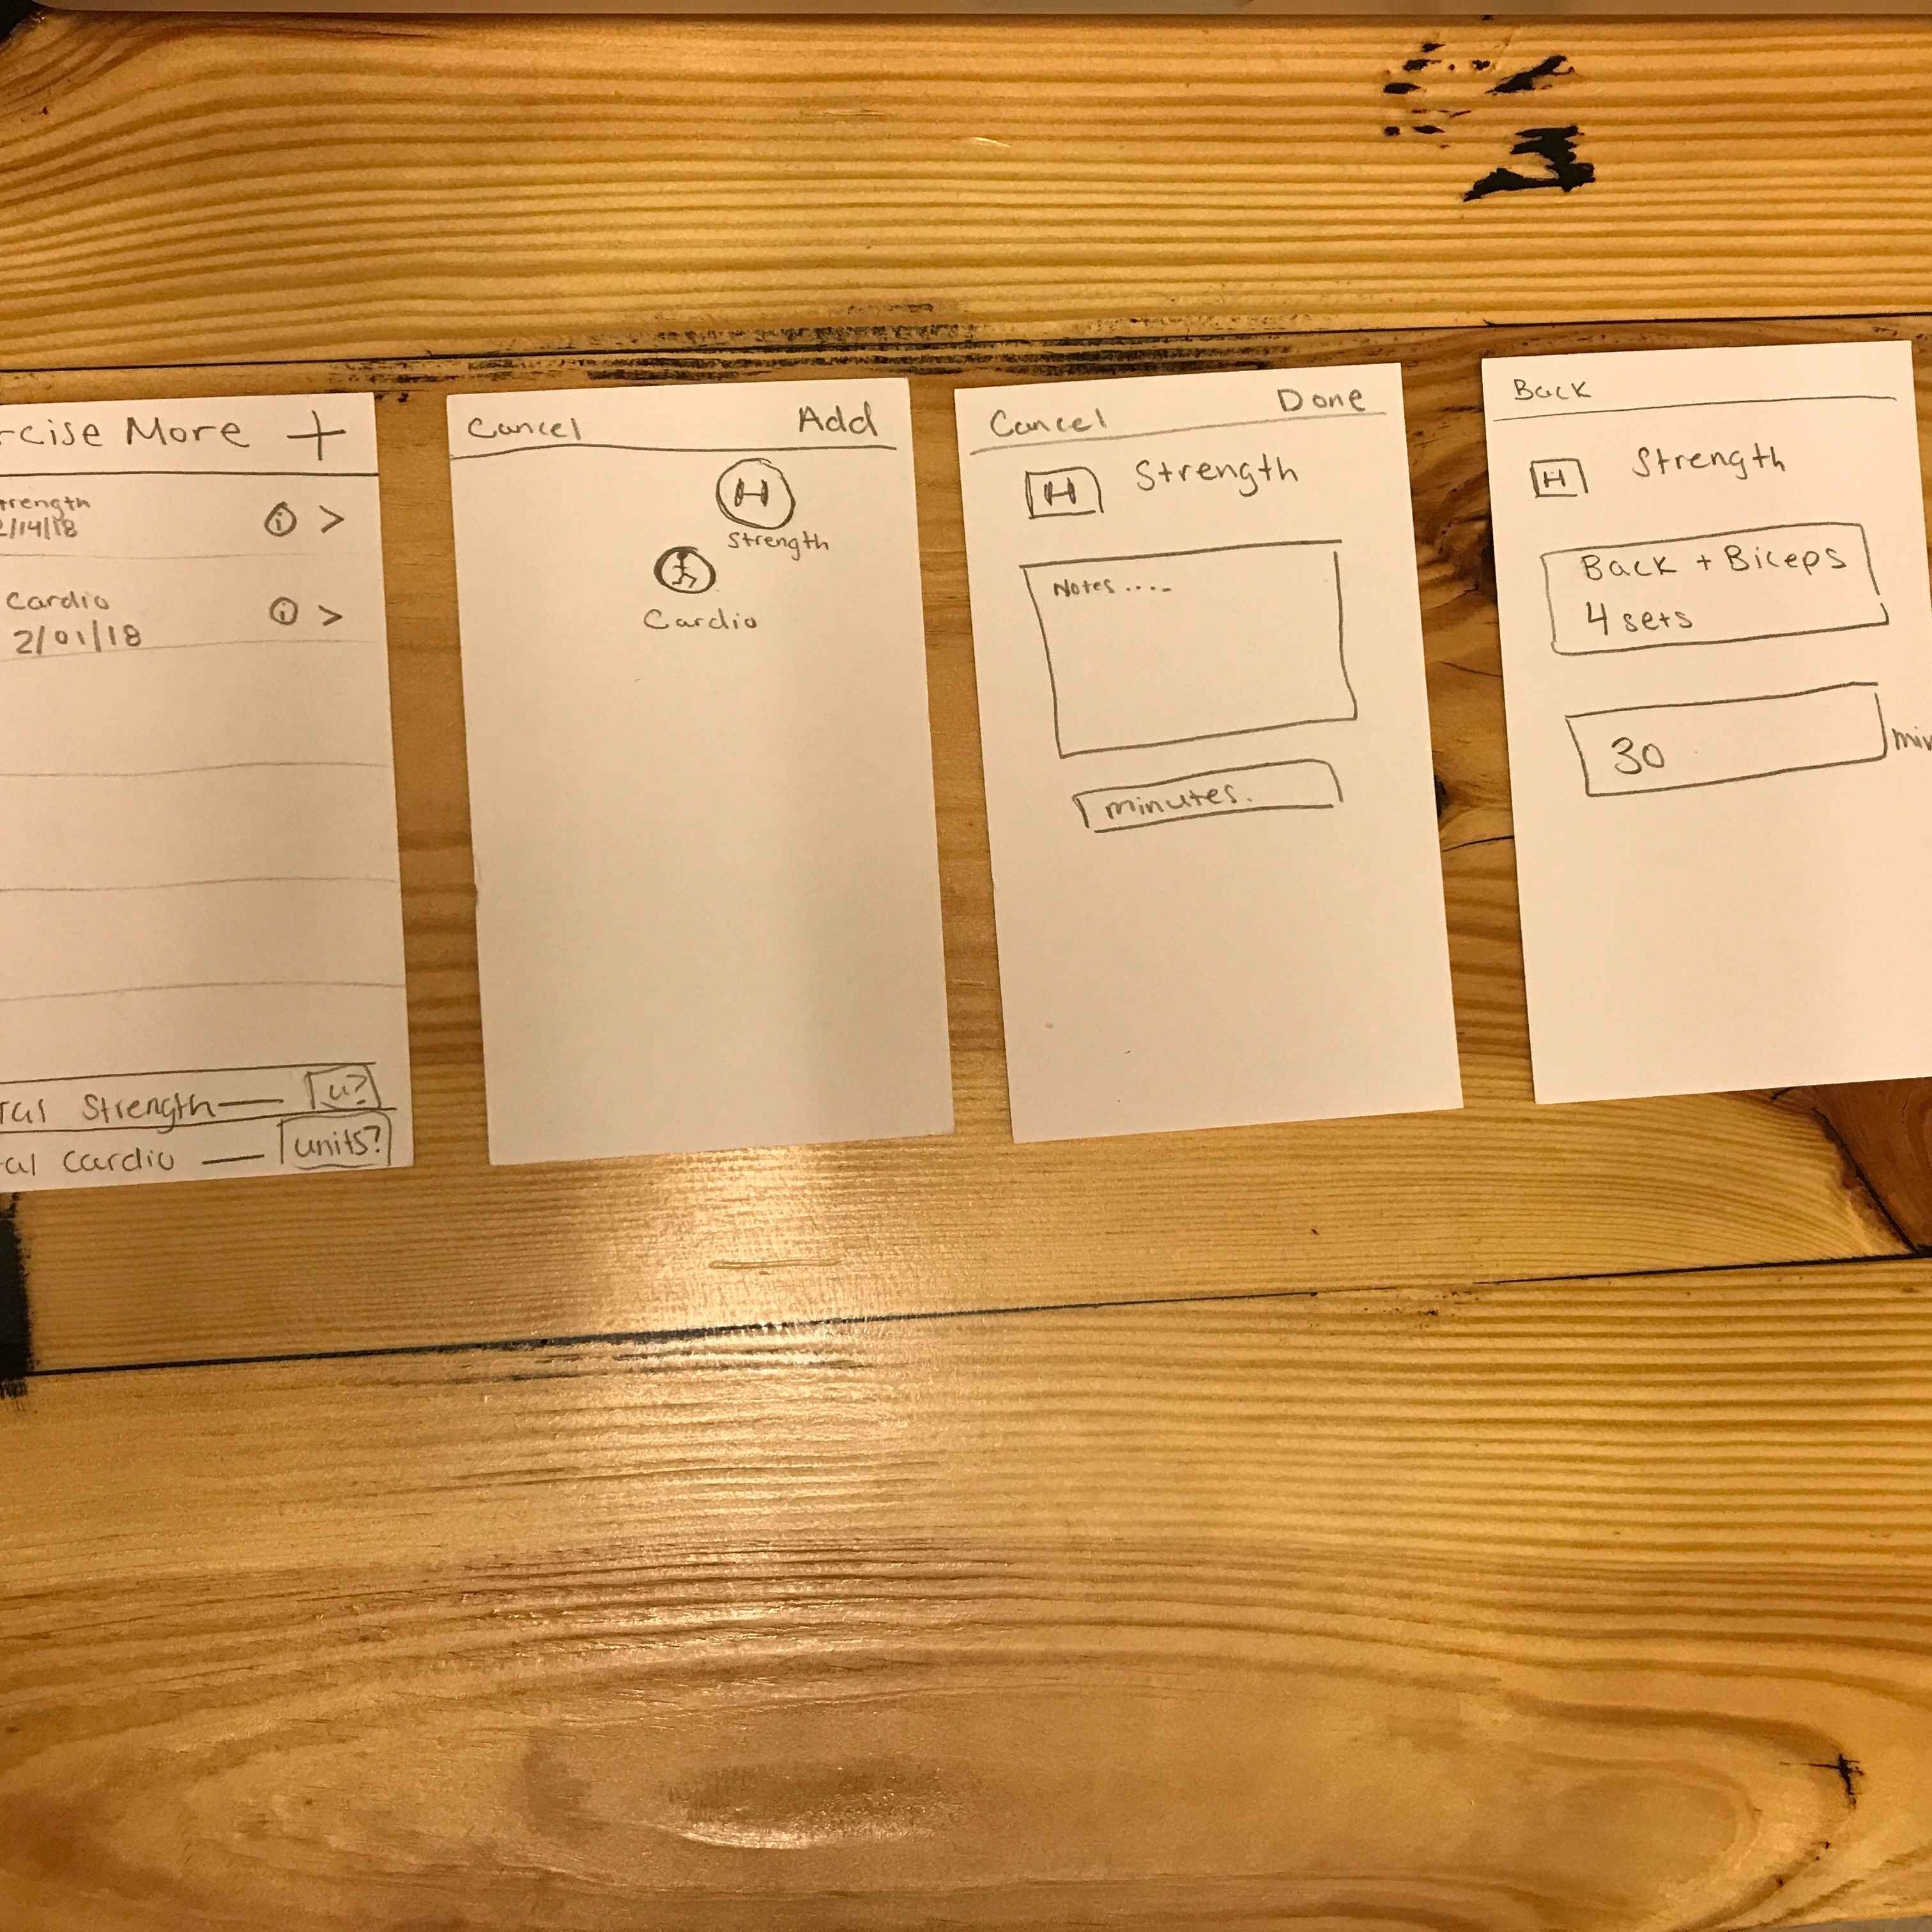 rcise More +
trength
2/14/18
i >
Cardio
2/01/18
i >
Strength — u?
al Cardio — units?
Cancel Add
H
Strength
Cardio
Cancel Done
H Strength
Notes ....
minutes.
Back
H Strength
Back + Biceps
4 sets
30 min